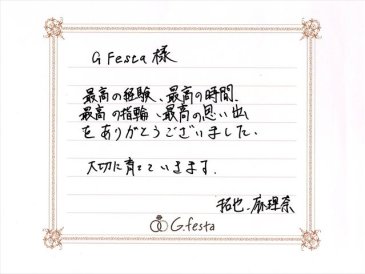 G Festa 様
最高の経験、最高の時間、
最高の指輪、最高の思い出
をありがとうございました。
大切に育てていきます。
拓也、麻理奈
G.festa